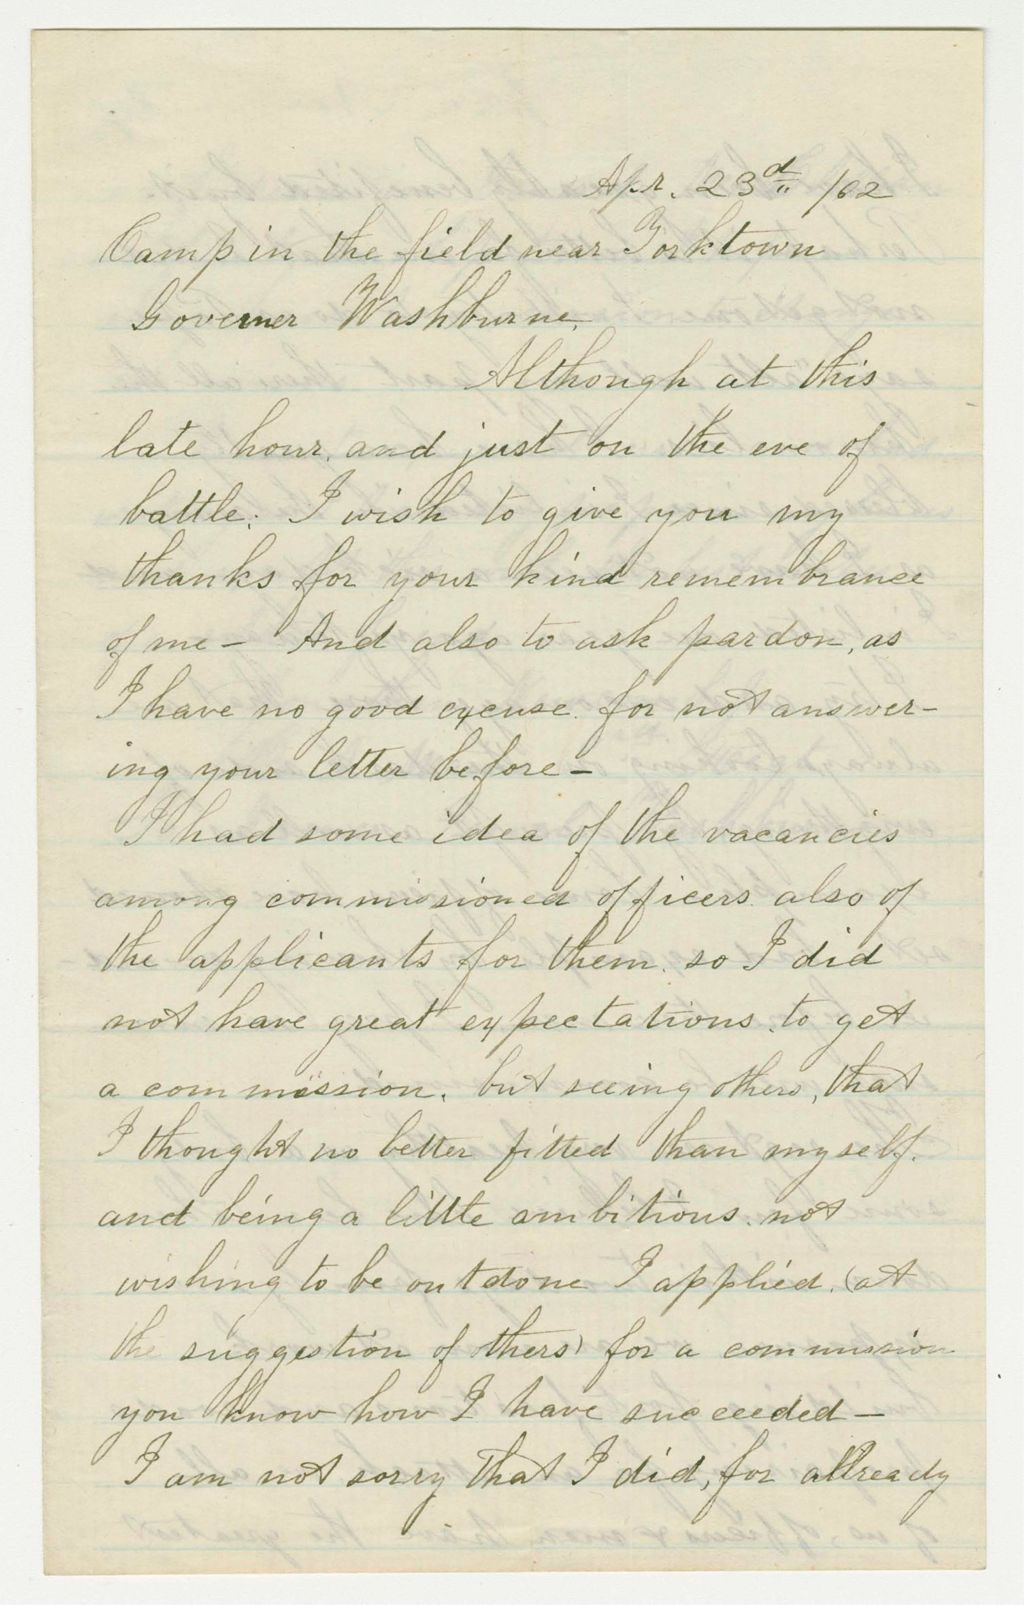 Apr. 23d /62
Camp in the field near Yorktown
Governer Washburne.
Although at this
late hour, and just on the eve of
battle; I wish to give you my
thanks for your kind remembrance
of me – And also to ask pardon, as
I have no good excuse for not answer-
ing your letter before –
I had some idea of the vacancies
among commissioned officers also of
the applicants for them. so I did
not have great expectations. to get
a commission. but seeing others, that
I thought no better fitted than myself.
and being a little ambitious. not
wishing to be outdone I applied. (at
the suggestion of others) for a commission
you know how I have succeeded –
I am not sorry that I did, for allready